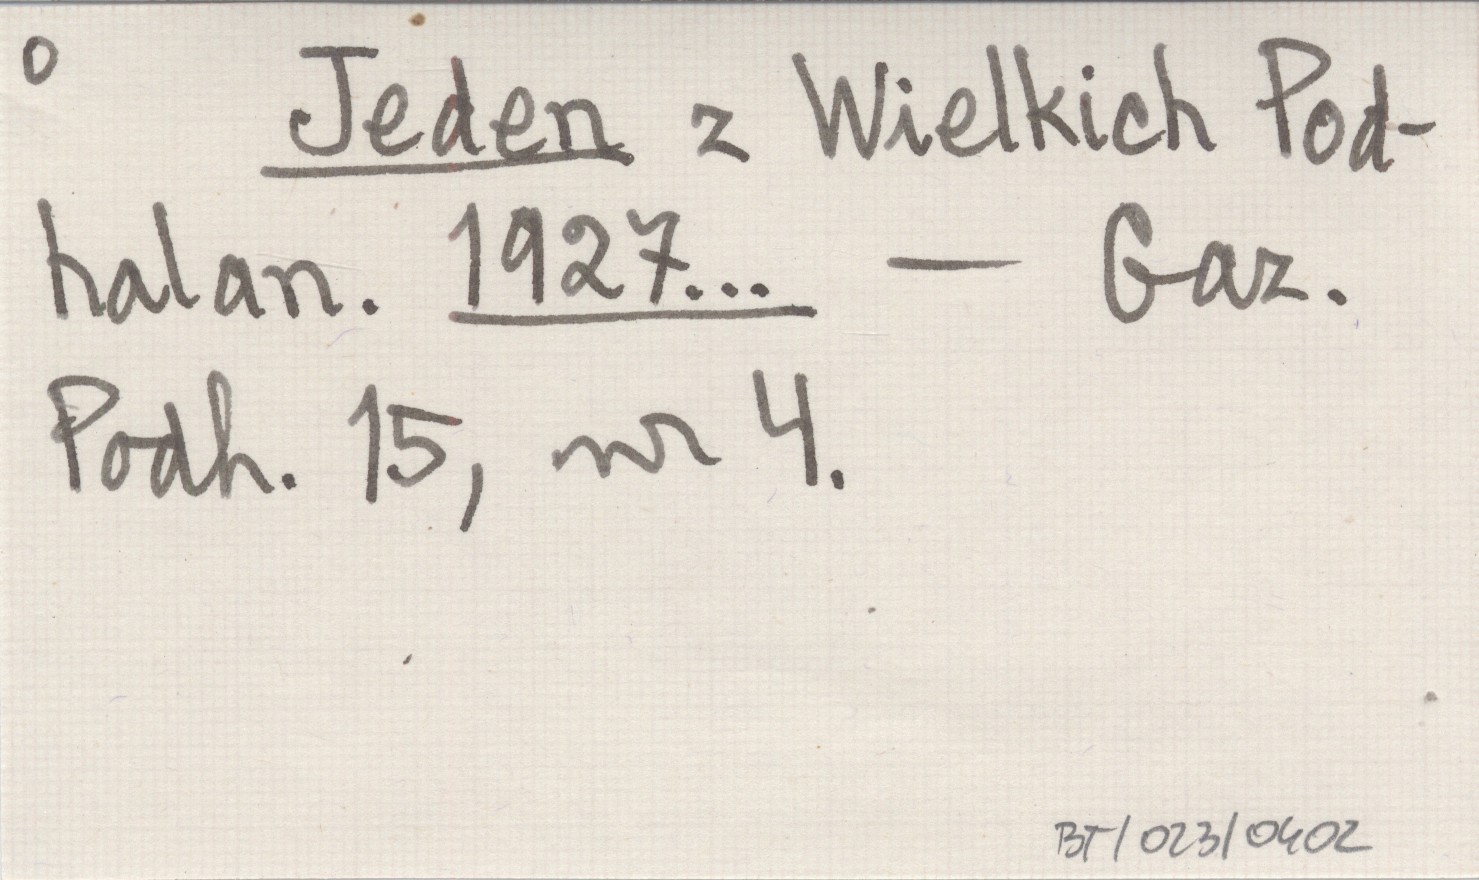 o
Jeden z Wielkich Pod-
halan. 1927... — Gaz.
Podh. 15, nr 4.
BT/023/0402